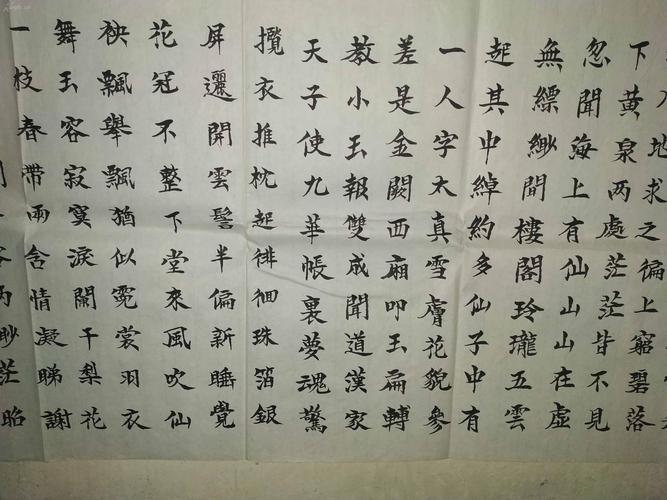 入地求之徧上窮碧落
下黃泉两處茫茫皆不見
忽聞海上有仙山山在虛
無縹緲間樓閣玲瓏五雲
起其中綽約多仙子中有
一人字太真雪膚花貌參
差是金闕西廂叩玉扃轉
教小玉報雙成聞道漢家
天子使九華帳裏夢魂驚
攬衣推枕起徘徊珠箔銀
屏邐開雲髻半偏新睡覺
花冠不整下堂來風吹仙
袂飄舉飄猶似霓裳羽衣
舞玉容寂寞淚闌干梨花
一枝春帶雨含情凝睇謝
容两緲茫昭